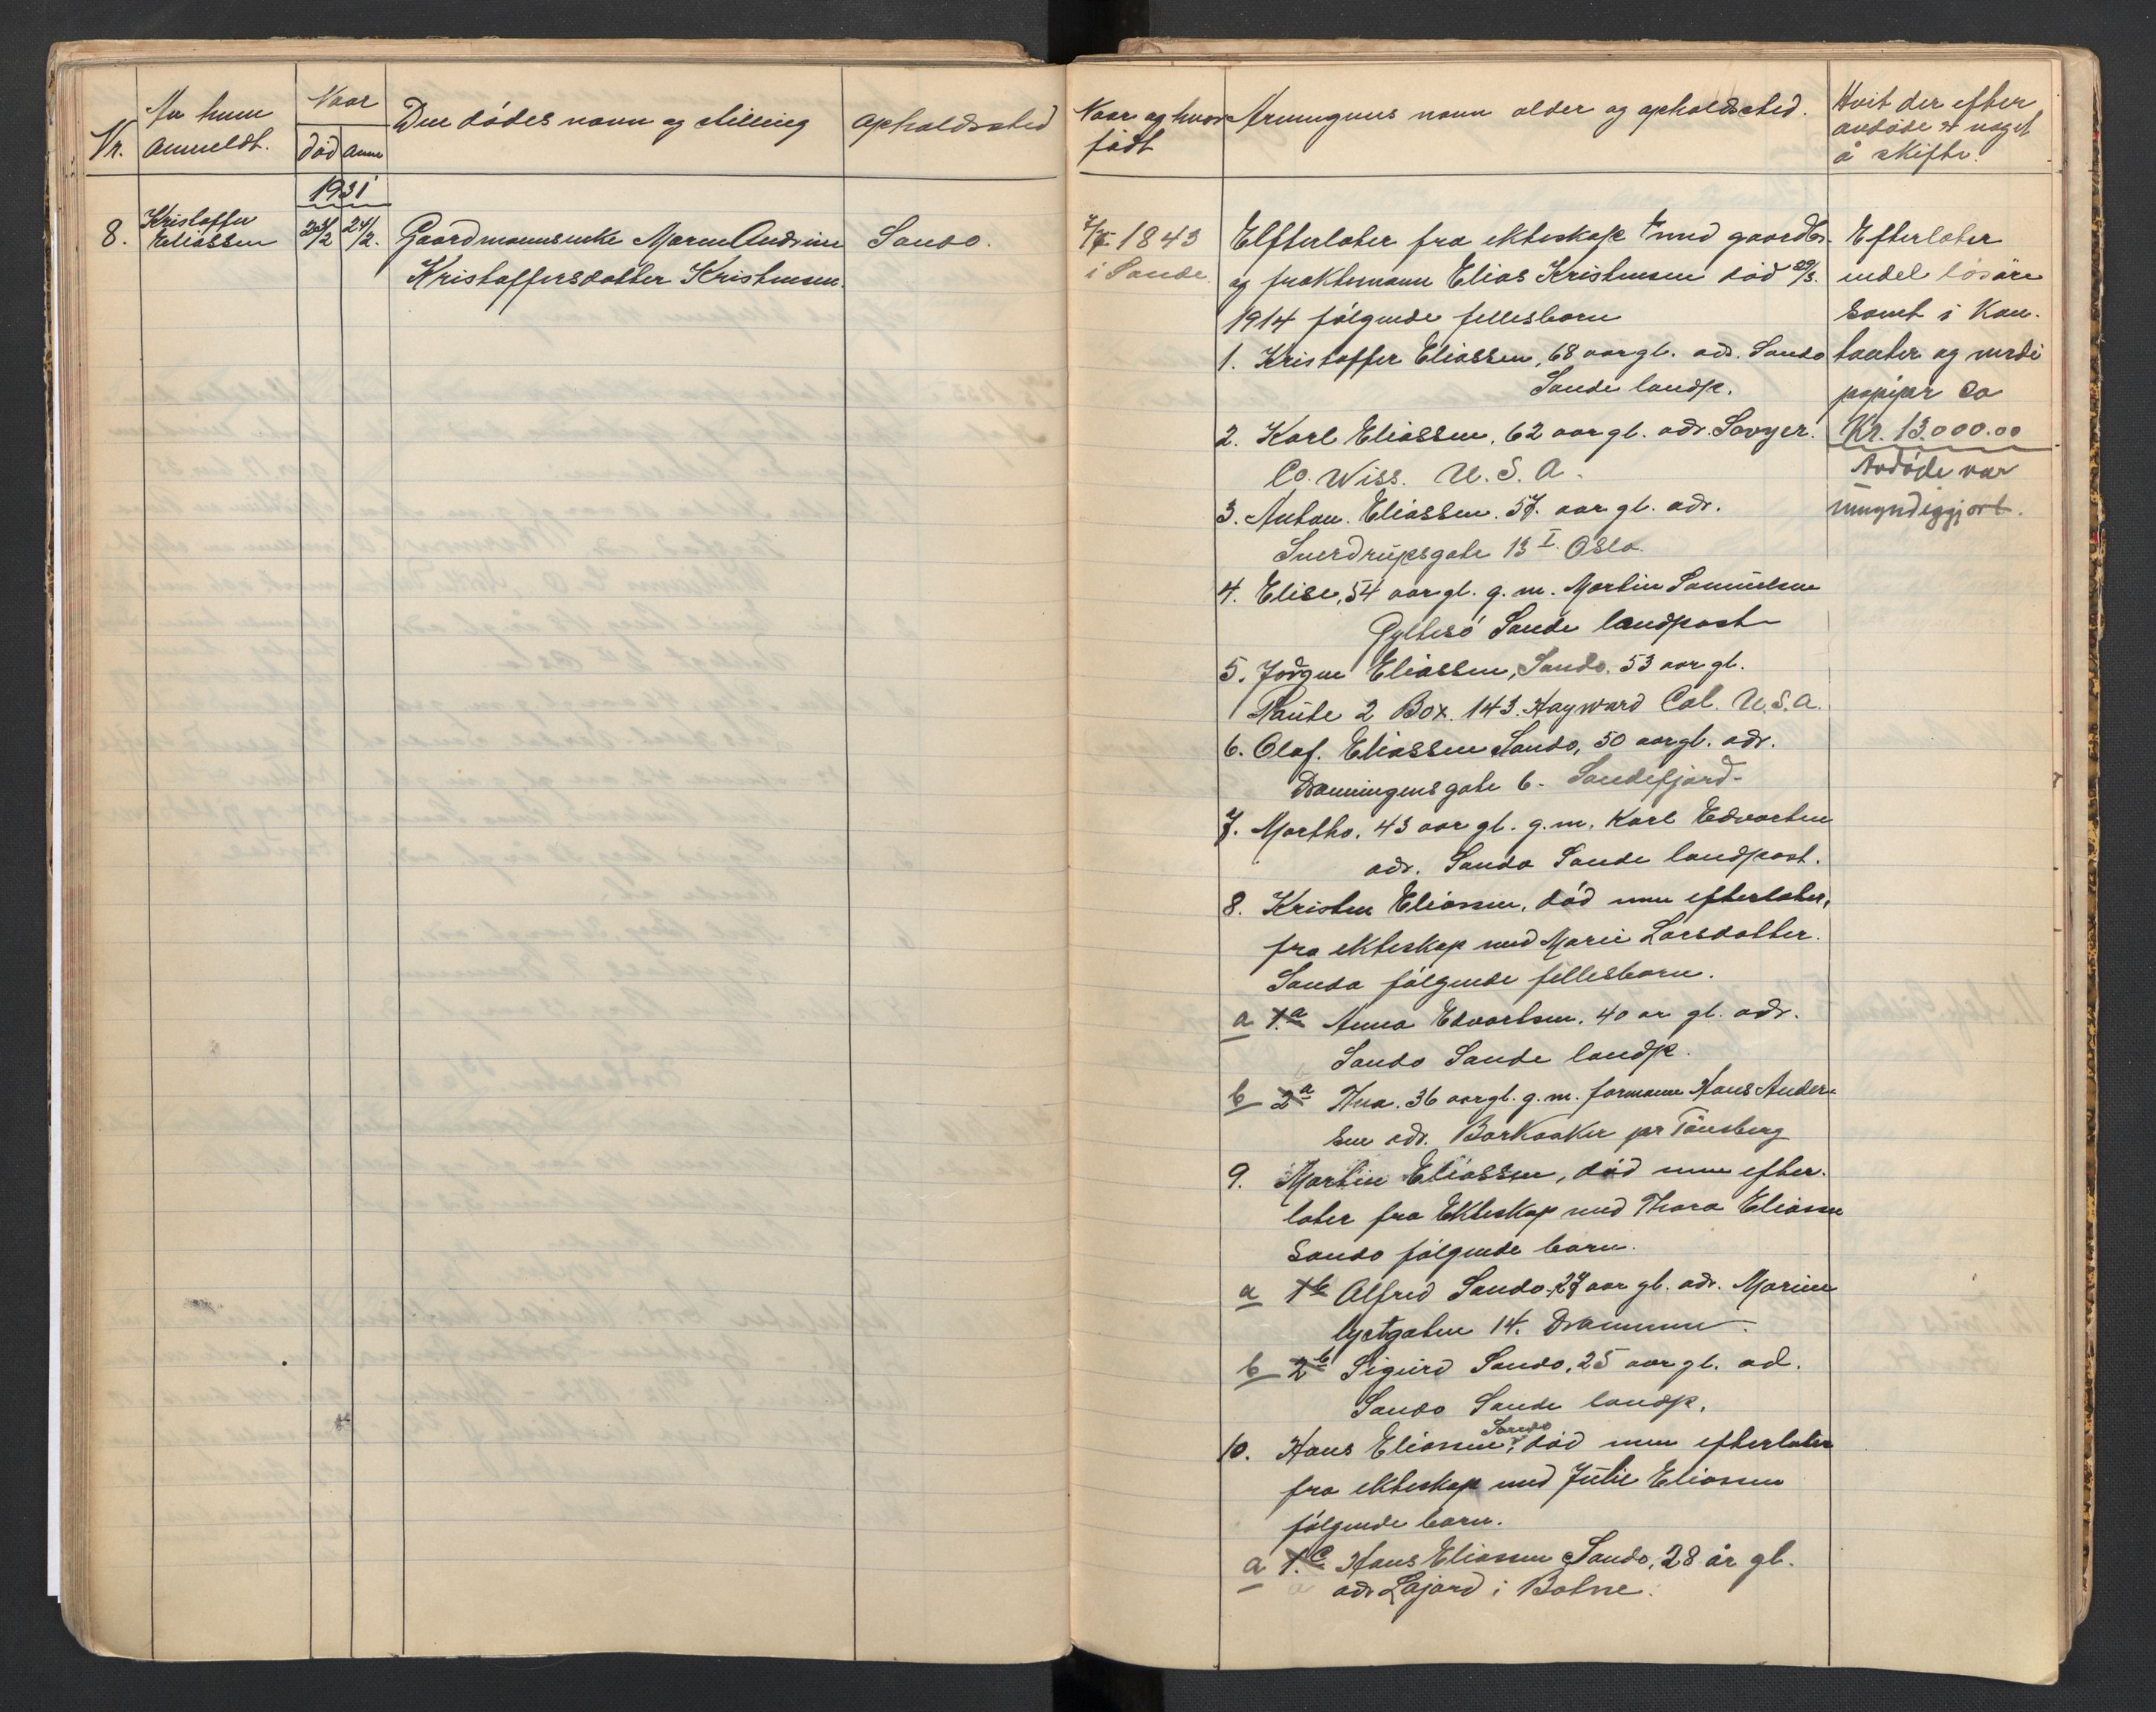 Nr.
Av hvem
anmeldt.
Naar
død
Anm
Den dødes navn og stilling
Opholdssted
Naar og hvor
født
Arvingenes navn alder og opholdssted.
Hvit der efter
avdøde er noget
å skifte.
1931
8.
Kristoffer
Eliassen
23/2
24/2.
Gaardmannsenke Maren Andrine
Kristoffersdatter Kristensen.
Sando.
1843
i Sande
Elfterlater fra ekteskap med gaardbr.
og fraktemann Elias Kristensen død 29/3.
1914 følgende fellesbarn
1. Kristoffer Eliassen, 68 aar gl. adr. Sando
Sande landp.
2. Karl Eliassen, 62 aar gl. adr. Sovyer.
Co. Wiss. U.S.A.
3. Anton. Eliassen. 57. aar gl. adr.
Sverdrupsgate 13 I. Oslo.
4. Elise, 54 aar gl. g.m. Martin Samuelsen
Gyltesø Sande landpost
5. Jørgen Eliassen, Sando. 53 aar gl.
Raute 2 Box. 143. Hayward Cal. U.S.A.
6. Olaf. Eliassen Sando, 50 aar gl. adr.
Dronningensgate 6. Sandefjord.
7. Martha. 43 aar gl. g.m. Karl Edvartsen
adr. Sando Sande landpost.
8. Kristen Eliassen, død men efterlater,
fra ekteskap med Marie Larsdatter.
Sando følgende fellesbarn.
a 1.a Anna Edvartsen. 40 ar gl. adr.
Sando Sande landp.
b 2a 36 aar gl. g.m. formann Hans Ander-
sen adr. Barkaaker pr Tönsberg
9. Martin Eliassen, død men efter-
later fra Ekteskap med Thora Eliassen
Sando følgende barn.
a 1b Alfred Sando, 27 aar gl. adr. Marien
lystgaten 14. Drammen.
b 2b Sigurd Sando, 25 aar gl. ad.
Sando Sande landp.
10. Hans Eliassen, Sando død men efterlater
fra ekteskap med Julie Eliassen
følgende barn.
a 1.c Hans Eliassen Sando, 28 år gl.
adr Løjord i Botne.
Efterlater
endel løsøre
samt i Kon-
tanter og verdi
papiper Ca
Kr. 13.000.00
Avdøde var
umyndiggjort.